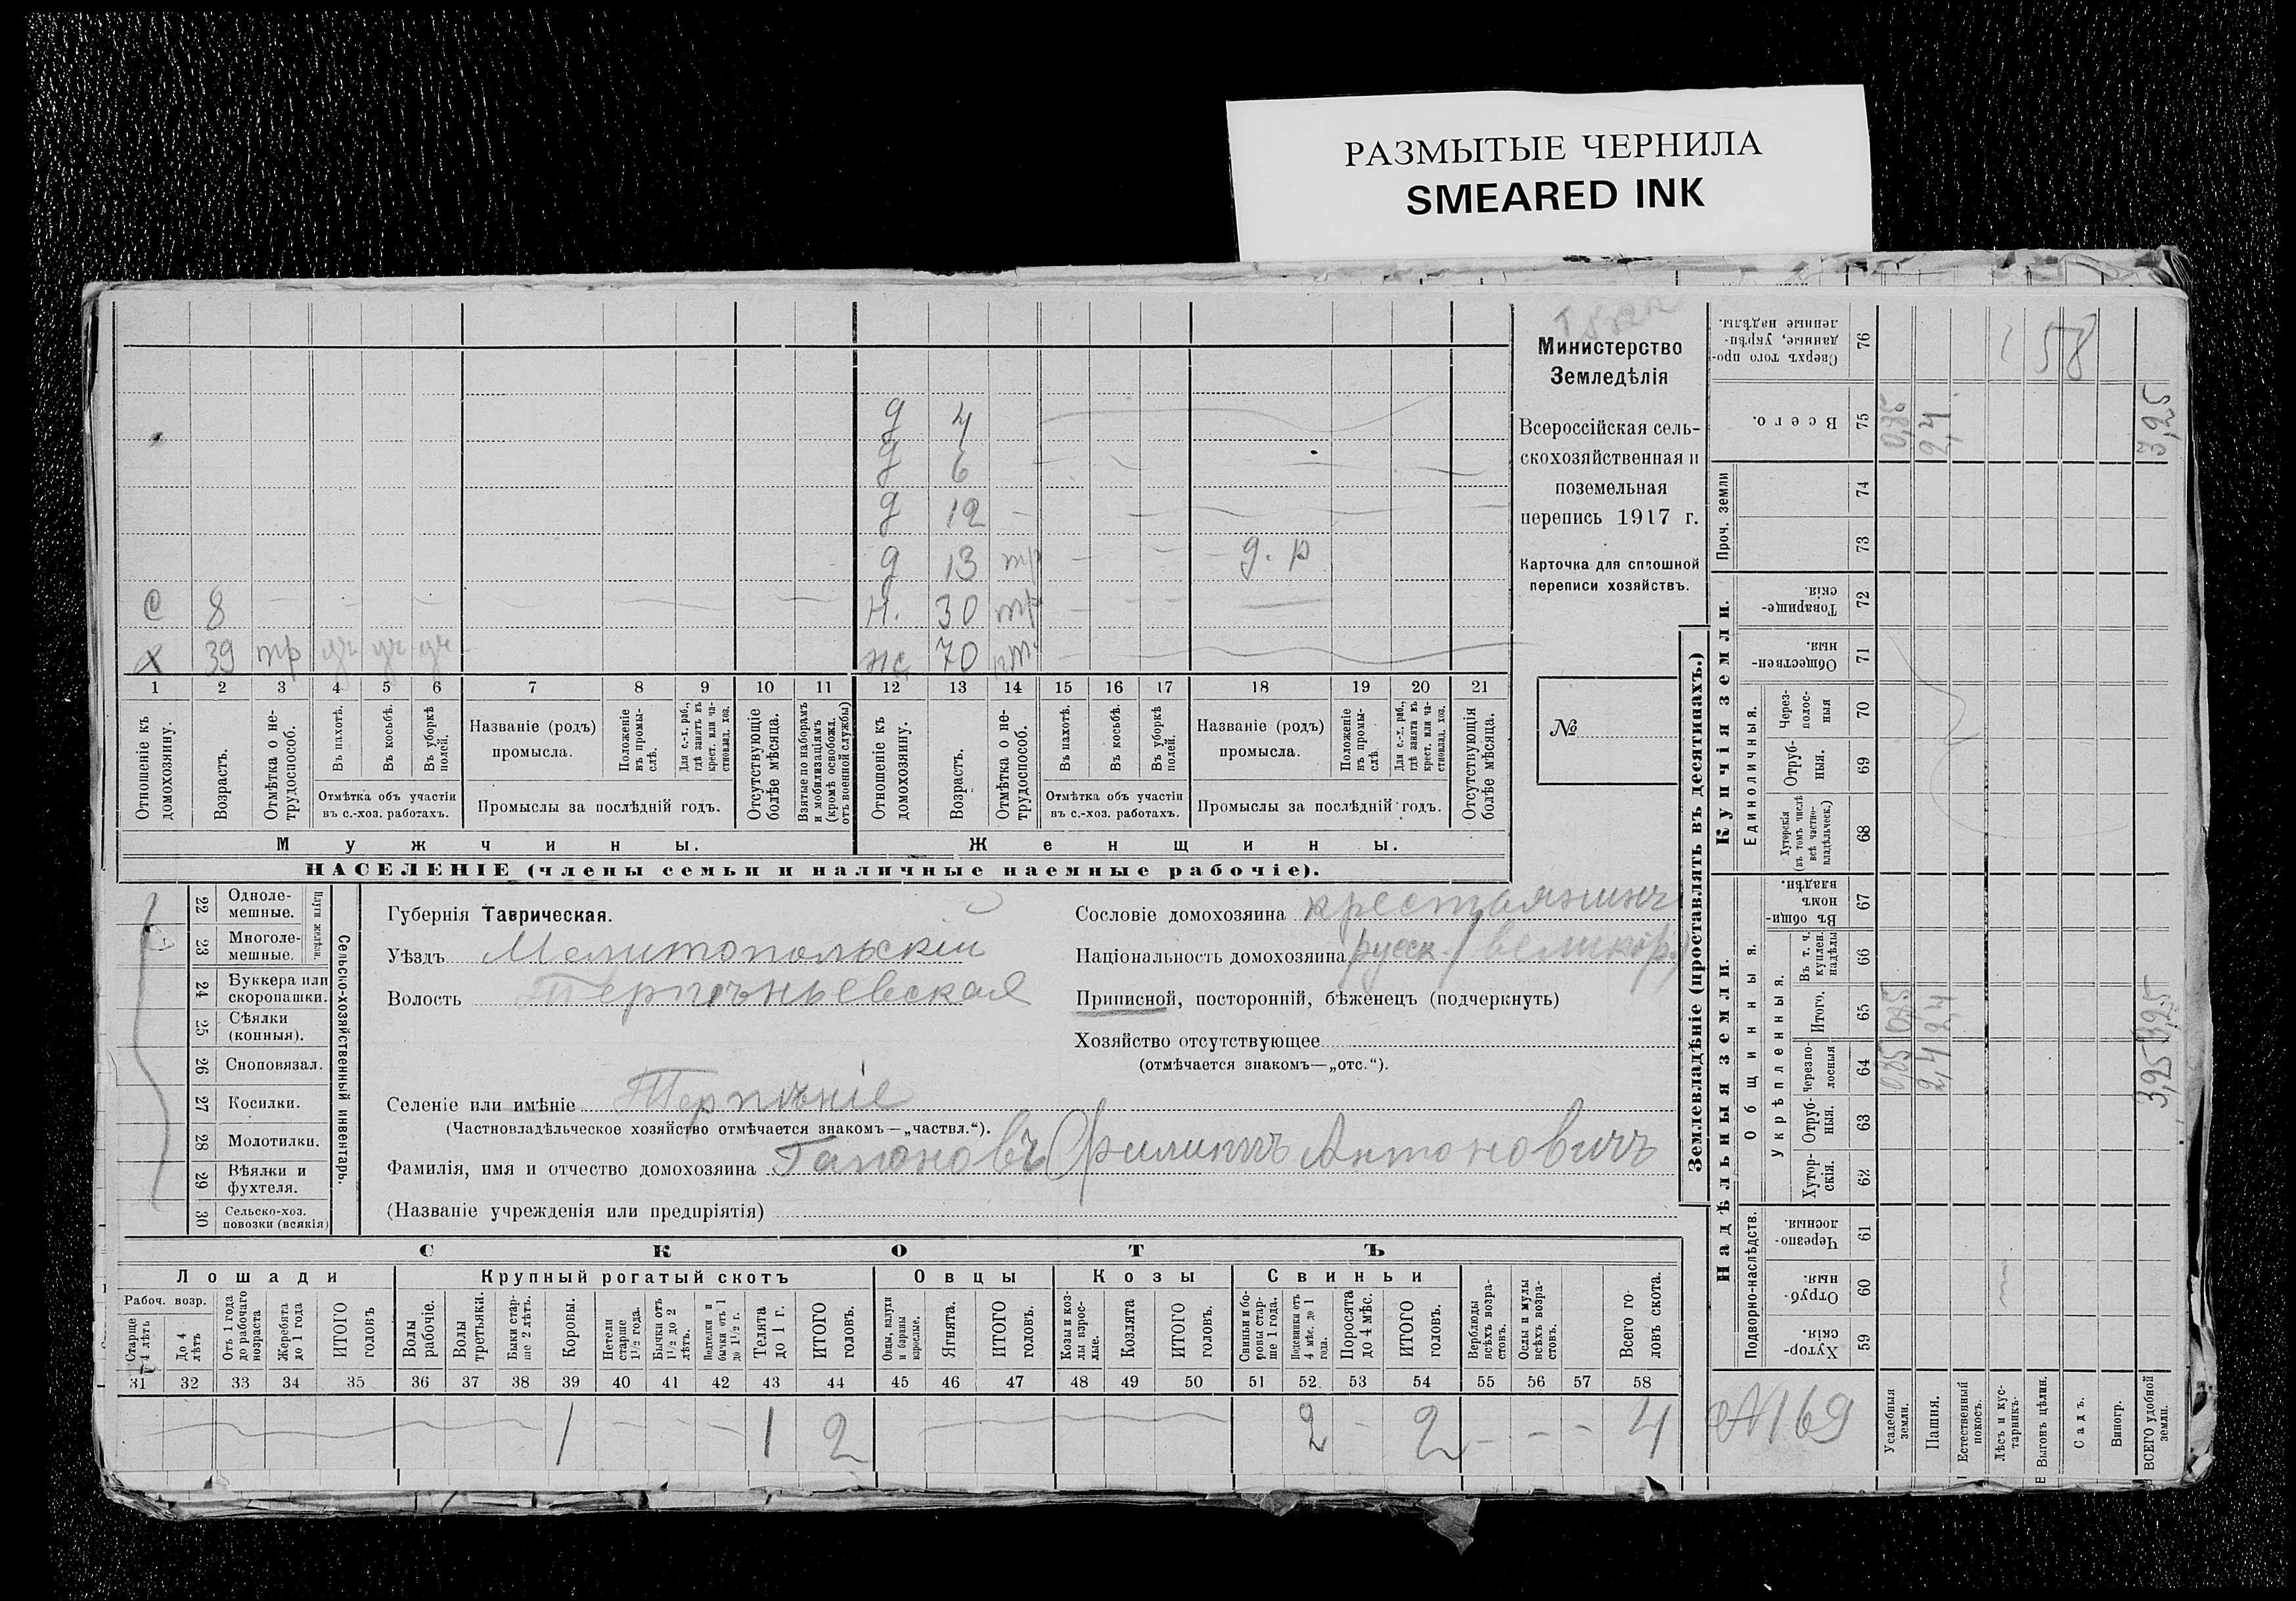 РАЗМЫТЫЕ ЧЕРНИЛА
SMEARED INK
Министерство
Земледѣлія
Всероссійская сель-
скохозяйственная и
поземельная
перепись 1917 г.
Карточка для сплошной
переписи хозяйствъ.
№
д 4
д 6
д 12 —
д 13 тр — — — д. р
с 8 н. 30 тр
х 39 тр уч уч уч 70
1 2 3 4 5 6 7 8 9 10 11 12 13 14 15 16 17 18 19 20 21
Отношеніе къ домохозяину.
Возрастъ.
Отмѣтка о не-трудоспособ.
Въ пахотѣ.
Въ косьбѣ.
Въ уборкѣ полей.
Отмѣтка объ участіи въ с.-хоз. работахъ.
Названіе (родъ) промысла.
Положеніе въ промы-слѣ.
Для с.-х. раб., гдѣ занятъ въ крест. или ча-стновлад. хоз.
Промыслы за послѣдній годъ.
Отсутствующіе болѣе мѣсяца.
Взятые по наборамъ и мобилизаціямъ (кромѣ освобожд. отъ военной службы)
Отношеніе къ домохозяину.
Возрастъ.
Отмѣтка о не-трудоспособ.
Въ пахотѣ.
Въ косьбѣ.
Въ уборкѣ полей.
Отмѣтка объ участіи въ с.-хоз. работахъ.
Названіе (родъ) промысла.
Положеніе въ промы-слѣ.
Для с.-х. раб., гдѣ занята въ крест. или ча-стновлад. хоз.
Промыслы за послѣдній годъ.
Отсутствующія болѣе мѣсяца.
Мужчины. Женщины.
НАСЕЛЕНІЕ (члены семьи и наличные наемные рабочіе).
22 Одноле-мешные.
23 Многоле-мешные.
Плуги желѣзн.
24 Буккера или скоропашки.
25 Сѣялки (конныя).
26 Сноповязал.
27 Косилки.
28 Молотилки.
29 Вѣялки и фухтеля.
30 Сельско-хоз. повозки (всякія)
Сельско-хозяйственный инвентарь.
Губернія Таврическая.
Уѣздъ Мелитопольскій
Волость Терпѣньевская
Селеніе или имѣніе Терпѣніе
(Частновладѣльческое хозяйство отмѣчается знакомъ—„частвл.“).
Фамилія, имя и отчество домохозяина Гапоновъ Филиппъ Антоновичъ
(Названіе учрежденія или предпріятія)
Сословіе домохозяина крестьянинъ
Національность домохозяина русск. /великор./
Приписной, посторонній, бѣженецъ (подчеркнуть)
Хозяйство отсутствующее
(отмѣчается знакомъ—„отс.“).
СКОТЪ
Лошади Крупный рогатый скотъ Овцы Козы Свиньи
Рабоч. возр.
Старше 4 лѣтъ
До 4 лѣтъ
Отъ 1 года до рабочаго возраста
Жеребята до 1 года
ИТОГО головъ
Волы рабочіе.
Волы третьяки.
Быки стар-ше 2 лѣтъ.
Коровы.
Нетели старше 1½ года.
Бычки отъ 1½ до 2 лѣтъ.
Подтелки и бычки отъ 1 до 1½ г.
Телята до 1 г.
ИТОГО головъ.
Овцы, валухи и бараны взрослые.
Ягнята.
ИТОГО головъ.
Козы и коз-лы взрос-лые.
Козлята
ИТОГО головъ.
Свиньи и бо-ровы стар-ше 1 года.
Подсвинки отъ 4 мѣс. до 1 года.
Поросята до 4 мѣс.
ИТОГО головъ.
Верблюды всѣхъ возра-стовъ.
Ослы и мулы всѣхъ возра-стовъ.
Всего го-ловъ скота.
31 32 33 34 35 36 37 38 39 40 41 42 43 44 45 46 47 48 49 50 51 52 53 54 55 56 57 58
1 — — — 1 2 2 - 2 - - - 4
Землевладѣніе (проставлять въ десятинахъ.)
Надѣльныя земли. Купчія земли.
Подворно-наслѣдств.
Общинныя.
Укрѣпленныя.
Единоличныя.
Проч. земли
59 Хутор-скія.
60 Отруб-ныя.
61 Черезпо-лосныя.
62 Хутор-скія.
63 Отруб-ныя.
64 Черезпо-лосныя
65 Итого.
66 Въ т. ч. куплен. надѣлы
67 Въ общи-номъ владѣн.
68 Хуторскія (въ томъ числѣ всѣ частно-владѣльческ.)
69 Отруб-ныя.
70 Через-полос-ныя
71 Обществен-ныя.
72 Товарище-скія.
73
74
75 Всего.
76 Сверхъ того про-данные, укрѣп-ленные надѣлы.
№ 169
Усадебныя земли. 0,85 0,85 0,85
Пашня. 2,4 2,4 2,4
Естественный покосъ.
Лѣсъ и кус-тарникъ.
Выгонъ цѣлин.
Садъ.
Виногр.
ВСЕГО удобной земли. 3,25 3,25 3,25
58